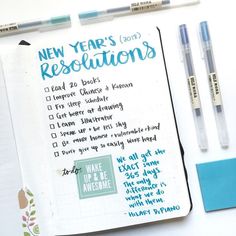 NEW YEAR'S (2017)
Resolutions
Read 20 books
Improve Chinese & Korean
Fix sleep schedule
Get better at drawing
Learn Illustrator
Speak up + be less shy
Be more honest + vulnerable + kind
Don't give up so easily work hard
to do:
WAKE
UP & BE
AWESOME
We all get the
EXACT same
365 days
The only
difference is
what we do
with them.
- HILLARY DEPIANO